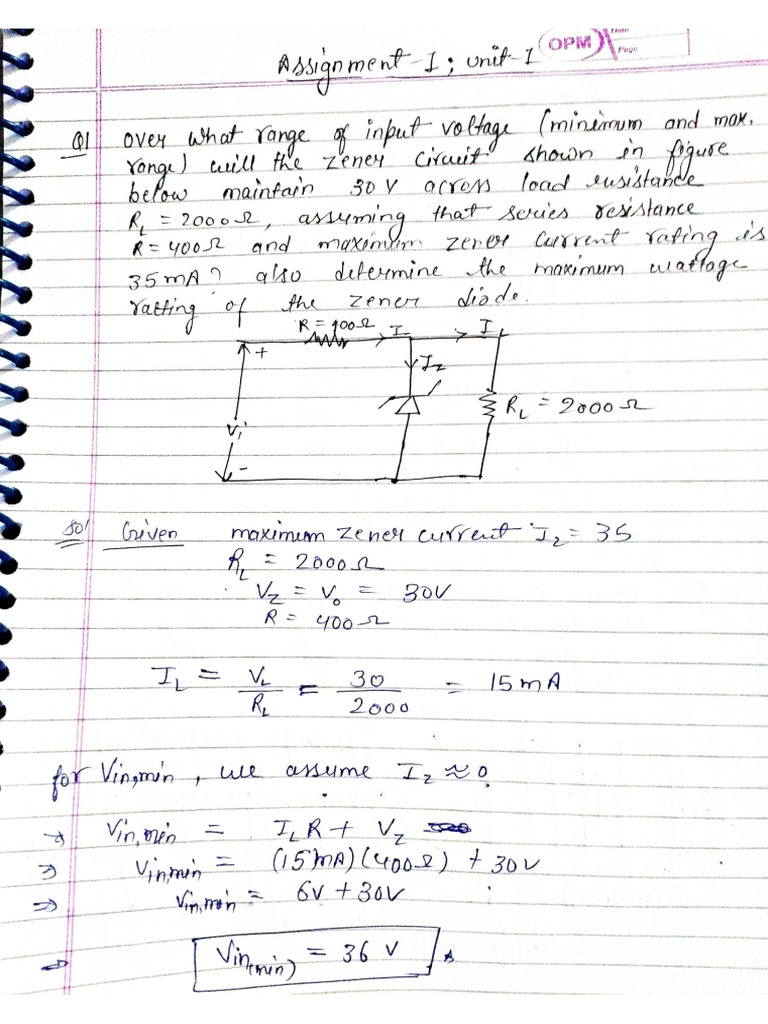 Assignment-I; unit-1
OPM
Date
Page
Q1 Over what range of input voltage (minimum and max.
range) will the zener circuit shown in figure
below maintain 30 V across load resistance
R_L = 2000Ω, assuming that series resistance
R = 400Ω and maximum zener current rating is
35 mA? also determine the maximum wattage
ratting of the zener diode.
R = 400Ω I I_L
+
I_Z
R_L = 2000Ω
Vi
-
Sol Given maximum zener current I_Z = 35
R_L = 2000Ω
V_Z = V_o = 30V
R = 400Ω
I_L = V_L/R_L = 30/2000 = 15mA
for Vin,min, we assume I_Z ≈ 0.
→ Vin,min = I_L R + V_Z
⇒ Vin,min = (15mA)(400Ω) + 30V
⇒ Vin,min = 6V + 30V
⇒ Vin(min) = 36 V